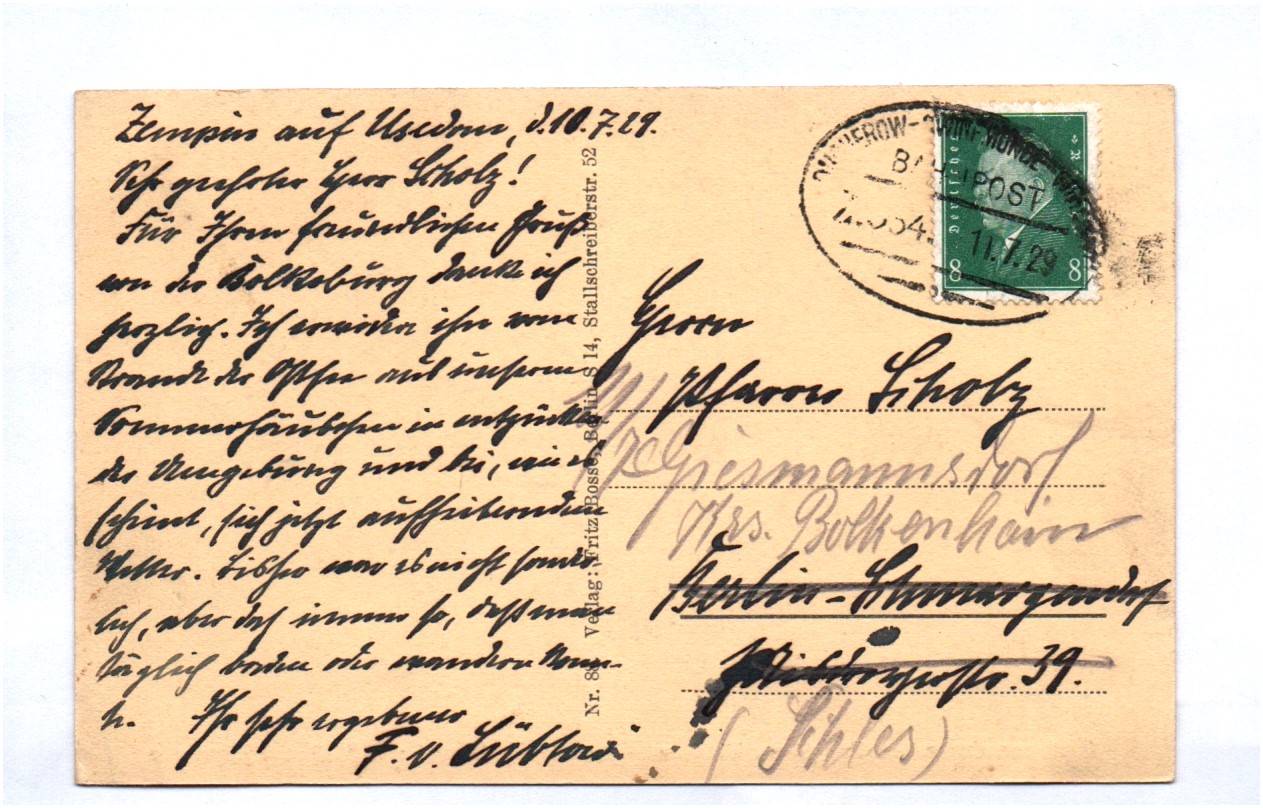 Zempin auf Usedom, d. 10.7.29.
Sehr geehrter Herr Scholz!
Für Ihren freundlichen Gruß
von der Bolkoburg danke ich
herzlich. Ich erwidre ihn vom
Strande der Ostsee aus unserem
Sommerhäuschen in entzücken
der Umgebung und bei, wie es
scheint, sich jetzt aufheiterndem
Wetter. Bisher war es nicht sonder
lich, aber doch immer so, daß man
täglich baden oder wandern konn-
te. Ihr sehr ergebener
F. v. Lübtow
Nr. 8 Verlag: Fritz Bosse, Berlin S 14, Stallschreiberstr. 52
DUCHEROW-SWINEMÜNDE
BAHNPOST
Z.
11.7.29
Deutsches
8 8
Herrn
Pfarrer Scholz
Giesmannsdorf
Krs. Bolkenhain
Berlin-Schmargendorf
39.
(Schles)